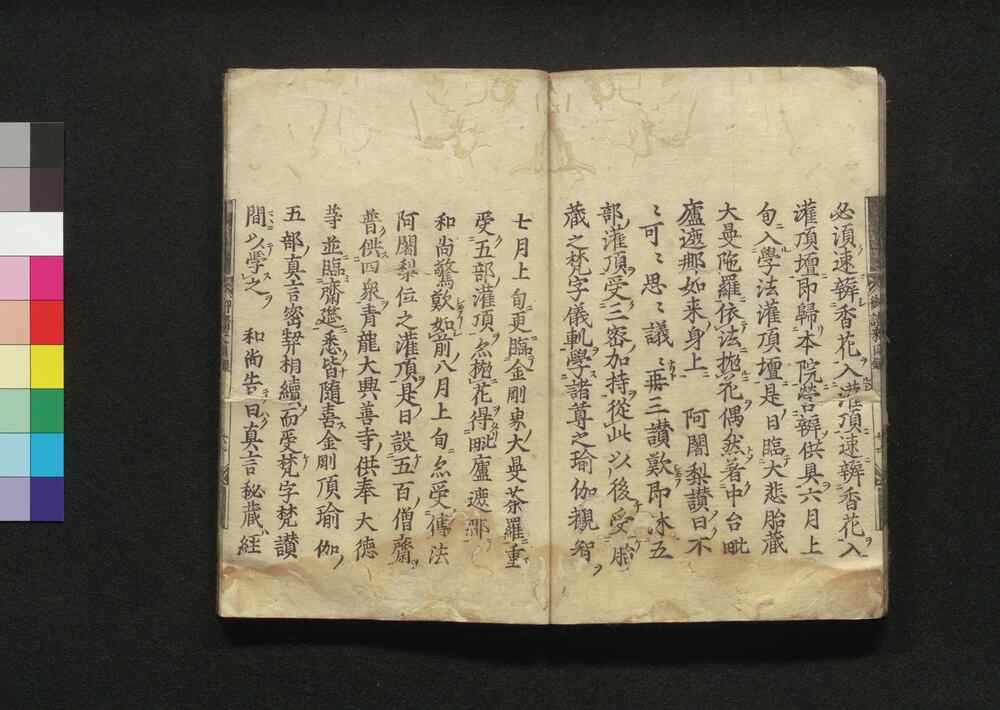 必須速辨香花入灌頂速辨香花入
灌頂壇即歸本院營辨供具六月上
旬入學法灌頂壇是日臨大悲胎藏
大曼陀羅依法抛花偶然著中台毗
廬遮那如來身上 阿闍梨讃曰不
〻可〻思〻議〻再三讃歎即沐五
部灌頂受三密加持從此以後受胎
藏之梵字儀軌學諸尊之瑜伽觀智
七月上旬更臨金剛東大曼荼羅重
受五部灌頂亦抛花得毗廬遮那
和尚驚歎如前八月上旬亦受傳法
阿闍梨位之灌頂是日設五百僧齋
普供四衆青龍大興善寺供奉大德
等並臨齋莚悉皆隨喜金剛頂瑜伽
五部真言密契相續而受梵字梵讃
間以學之 和尚告曰真言秘藏經